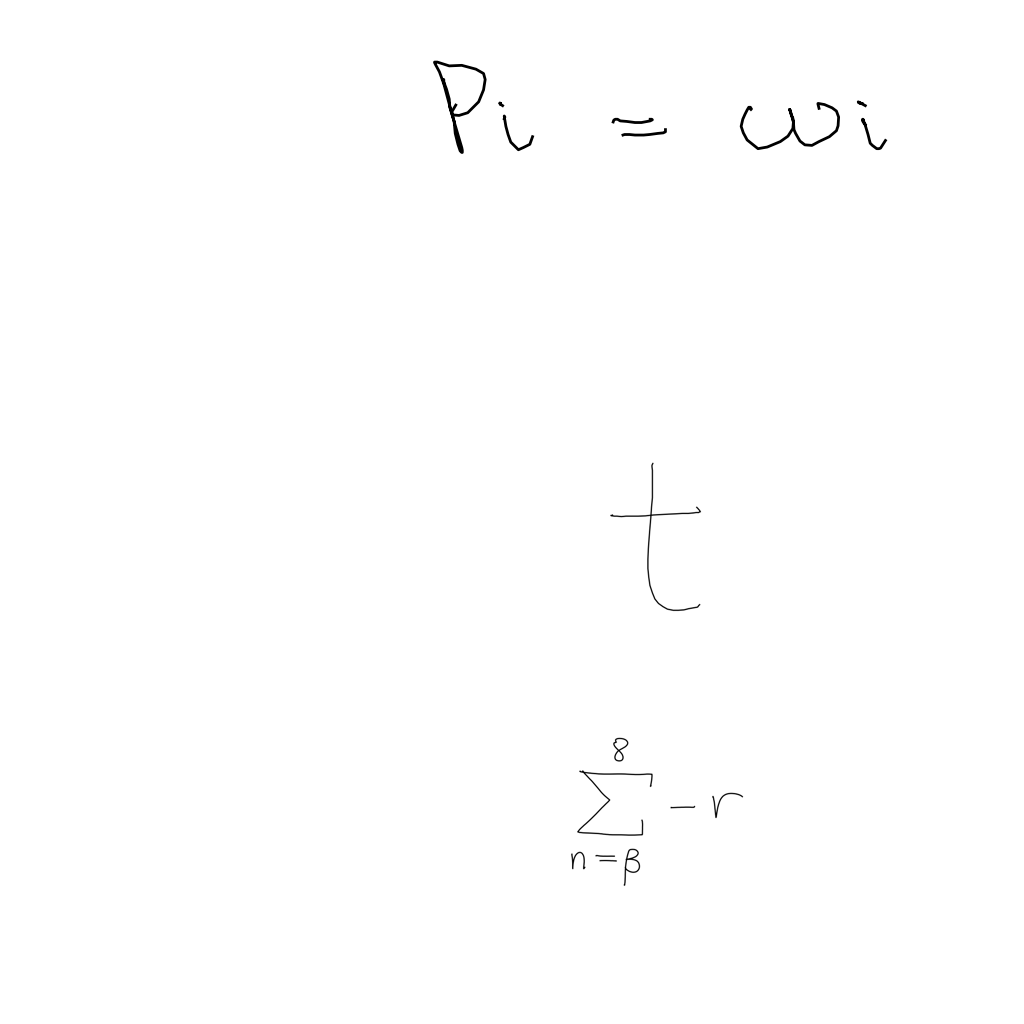 Pi = ωi
t
\sum_{n=β}^{8} - r